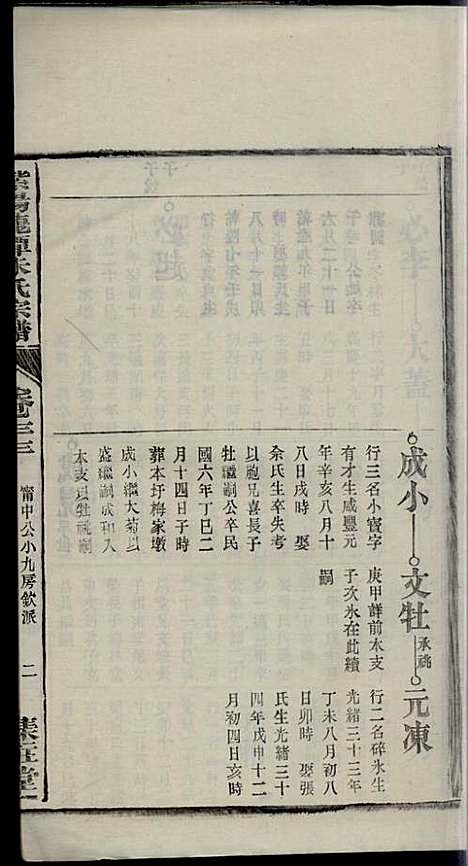 成小
文牡 承祧
元凍
行三名小寶字
有才生咸豐元
年辛亥八月十
八日戌時 娶
余氏生卒失考
以胞兄喜長子
牡繼嗣公卒民
國六年丁巳二
月十四日子時
葬本圩梅家墩
成小繼大菊以
盛繼嗣成和入
本支以牡祧嗣
庚甲詳前本支
子次氷在此續
嗣
行二名碎氷生
光緒三十三年
丁未八月初八
日卯時 娶張
氏生光緒三十
四年戊申十二
月初四日亥時
朱氏宗譜
卷三三
甯中公小九房欽派
二
堂